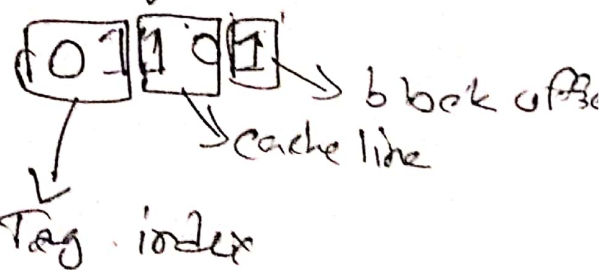 01 10 1
block offse
cache line
Tag index